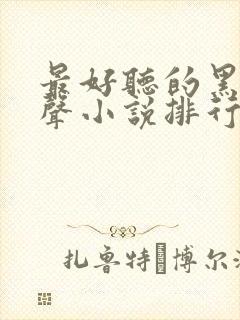 最好聽的黑
聲小說排行
扎魯特�博尔